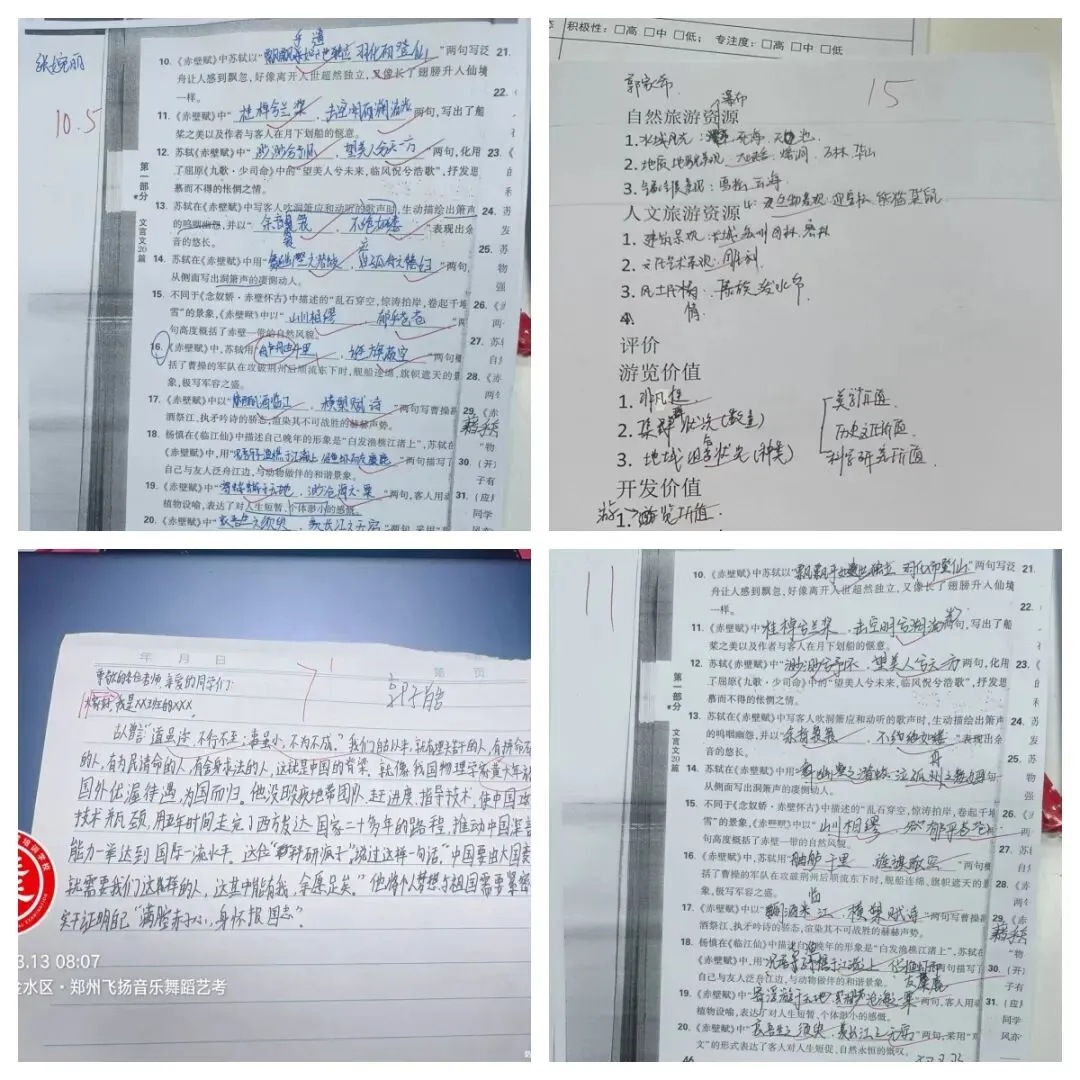 张婉丽
10.5
第一部分
文言文20篇
乎 遗
10.《赤壁赋》中苏轼以“飘飘乎如遗世独立,羽化而登仙”两句写泛
舟让人感到飘忽,好像离开人世超然独立,又像长了翅膀升入仙境
一样。
11.《赤壁赋》中“桂棹兮兰桨,击空明兮溯流光”两句,写出了船
桨之美以及作者与客人在月下划船的惬意。
12. 苏轼《赤壁赋》中“渺渺兮予怀,望美人兮天一方”两句,化用
了屈原《九歌·少司命》中的“望美人兮未来,临风怳兮浩歌”,抒发思
慕而不得的怅惘之情。
13. 苏轼在《赤壁赋》中写客人吹洞箫应和动听的歌声时,生动描绘出箫声
的呜咽幽怨,并以“余音袅袅,不绝如缕”表现出余
音的悠长。
14. 苏轼在《赤壁赋》中用“舞幽壑之潜蛟,泣孤舟之嫠妇”两句,
从侧面写出洞箫声的凄恻动人。
15. 不同于《念奴娇·赤壁怀古》中描述的“乱石穿空,惊涛拍岸,卷起千堆
雪”的景象,《赤壁赋》中以“山川相缪,郁乎苍苍”两
句高度概括了赤壁一带的自然风貌。
16.《赤壁赋》中,苏轼用“舳舻千里,旌旗蔽空”两句概
括了曹操的军队在攻破荆州后顺流东下时,舰船连绵、旗帜遮天的景
象,极写军容之盛。
17.《赤壁赋》中以“酾酒临江,横槊赋诗”两句写曹操
酒祭江、执矛吟诗的骄态,渲染其不可战胜的赫赫声势。
18. 杨慎在《临江仙》中描述自己晚年的形象是“白发渔樵江渚上”,苏轼在
《赤壁赋》中,用“况吾与子渔樵于江渚之上,侣鱼虾而友麋鹿”两句描写了
自己与友人泛舟江边,与动物做伴的和谐景象。
19.《赤壁赋》中“寄蜉蝣于天地,渺沧海之一粟”两句,客人用动
植物设喻,表达了对人生短暂、个体渺小的感慨。
20.《赤壁赋》中“哀吾生之须臾,羡长江之无穷”两句,采用“
21.
22.
23.
24.
25.
26.
27.
28.
29.
30.
31.
积极性:□高 □中 □低; 专注度:□高 □中 □低
15
瀑布
自然旅游资源
1. 水域风光:死海 天池
2. 地质地貌景观:大峡谷 溶洞 石林 华山
3. 气象气候景观:雾凇 云海
4. 动植物景观
人文旅游资源
1. 建筑景观:长城 苏州园林
2. 文化艺术景观:雕刻
3. 风土民情:傣族泼水节
评价
游览价值
1. 非凡性
2. 集群状况(数量)
3. 地域组合状况(种类)
美学价值
历史文化价值
科学研究价值
开发价值
1. 游览价值
年 月 日
第 页
尊敬的各位老师,亲爱的同学们:
大家好,我是XX班的XXX。
古人曾言“道虽迩,不行不至;事虽小,不为不成。”我们自古以来,就有埋头苦干的人,有拼命
的人,有为民请命的人,有舍身求法的人,这就是中国的脊梁。就像我国物理学家黄大年
国外优渥待遇,为国而归。他没日没夜地带团队、赶进度、指导技术,使中国
技术瓶颈,用五年时间走完了西方发达国家二十多年的路程,推动中国深
能力一举达到国际一流水平。这位“科研疯子”说过这样一句话:“中国要由大国变
就需要我们这样的人,这其中能有我,余愿足矣。”他将个人梦想与祖国需要紧密
实干证明自己“满腔赤子心,身怀报国志”。
3.13 08:07
金水区·郑州飞扬音乐舞蹈艺考
11
第一部分
文言文20篇
10.《赤壁赋》中苏轼以“飘飘乎如遗世独立,羽化而登仙”两句写泛
舟让人感到飘忽,好像离开人世超然独立,又像长了翅膀升入仙境
一样。
11.《赤壁赋》中“桂棹兮兰桨,击空明兮溯流光”两句,写出了船
桨之美以及作者与客人在月下划船的惬意。
12. 苏轼《赤壁赋》中“渺渺兮予怀,望美人兮天一方”两句,化用
了屈原《九歌·少司命》中的“望美人兮未来,临风怳兮浩歌”,抒发思
慕而不得的怅惘之情。
13. 苏轼在《赤壁赋》中写客人吹洞箫应和动听的歌声时,生动描绘出箫声
的呜咽幽怨,并以“余音袅袅,不绝如缕”表现出余
音的悠长。
14. 苏轼在《赤壁赋》中用“舞幽壑之潜蛟,泣孤舟之嫠妇”两句,
从侧面写出洞箫声的凄恻动人。
15. 不同于《念奴娇·赤壁怀古》中描述的“乱石穿空,惊涛拍岸,卷起千堆
雪”的景象,《赤壁赋》中以“山川相缪,郁乎苍苍”两
句高度概括了赤壁一带的自然风貌。
16.《赤壁赋》中,苏轼用“舳舻千里,旌旗蔽空”两句概
括了曹操的军队在攻破荆州后顺流东下时,舰船连绵、旗帜遮天的景
象,极写军容之盛。
17.《赤壁赋》中以“酾酒临江,横槊赋诗”两句写曹操
酒祭江、执矛吟诗的骄态,渲染其不可战胜的赫赫声势。
18. 杨慎在《临江仙》中描述自己晚年的形象是“白发渔樵江渚上”,苏轼在
《赤壁赋》中,用“况吾与子渔樵于江渚之上,侣鱼虾而友麋鹿”两句描写了
自己与友人泛舟江边,与动物做伴的和谐景象。
19.《赤壁赋》中“寄蜉蝣于天地,渺沧海之一粟”两句,客人用动
植物设喻,表达了对人生短暂、个体渺小的感慨。
20.《赤壁赋》中“哀吾生之须臾,羡长江之无穷”两句,采用“对
文”的形式表达了客人对人生短促、自然永恒的慨叹。
21.
22.
23.
24.
25.
26.
27.
28.
29.
30.
31.